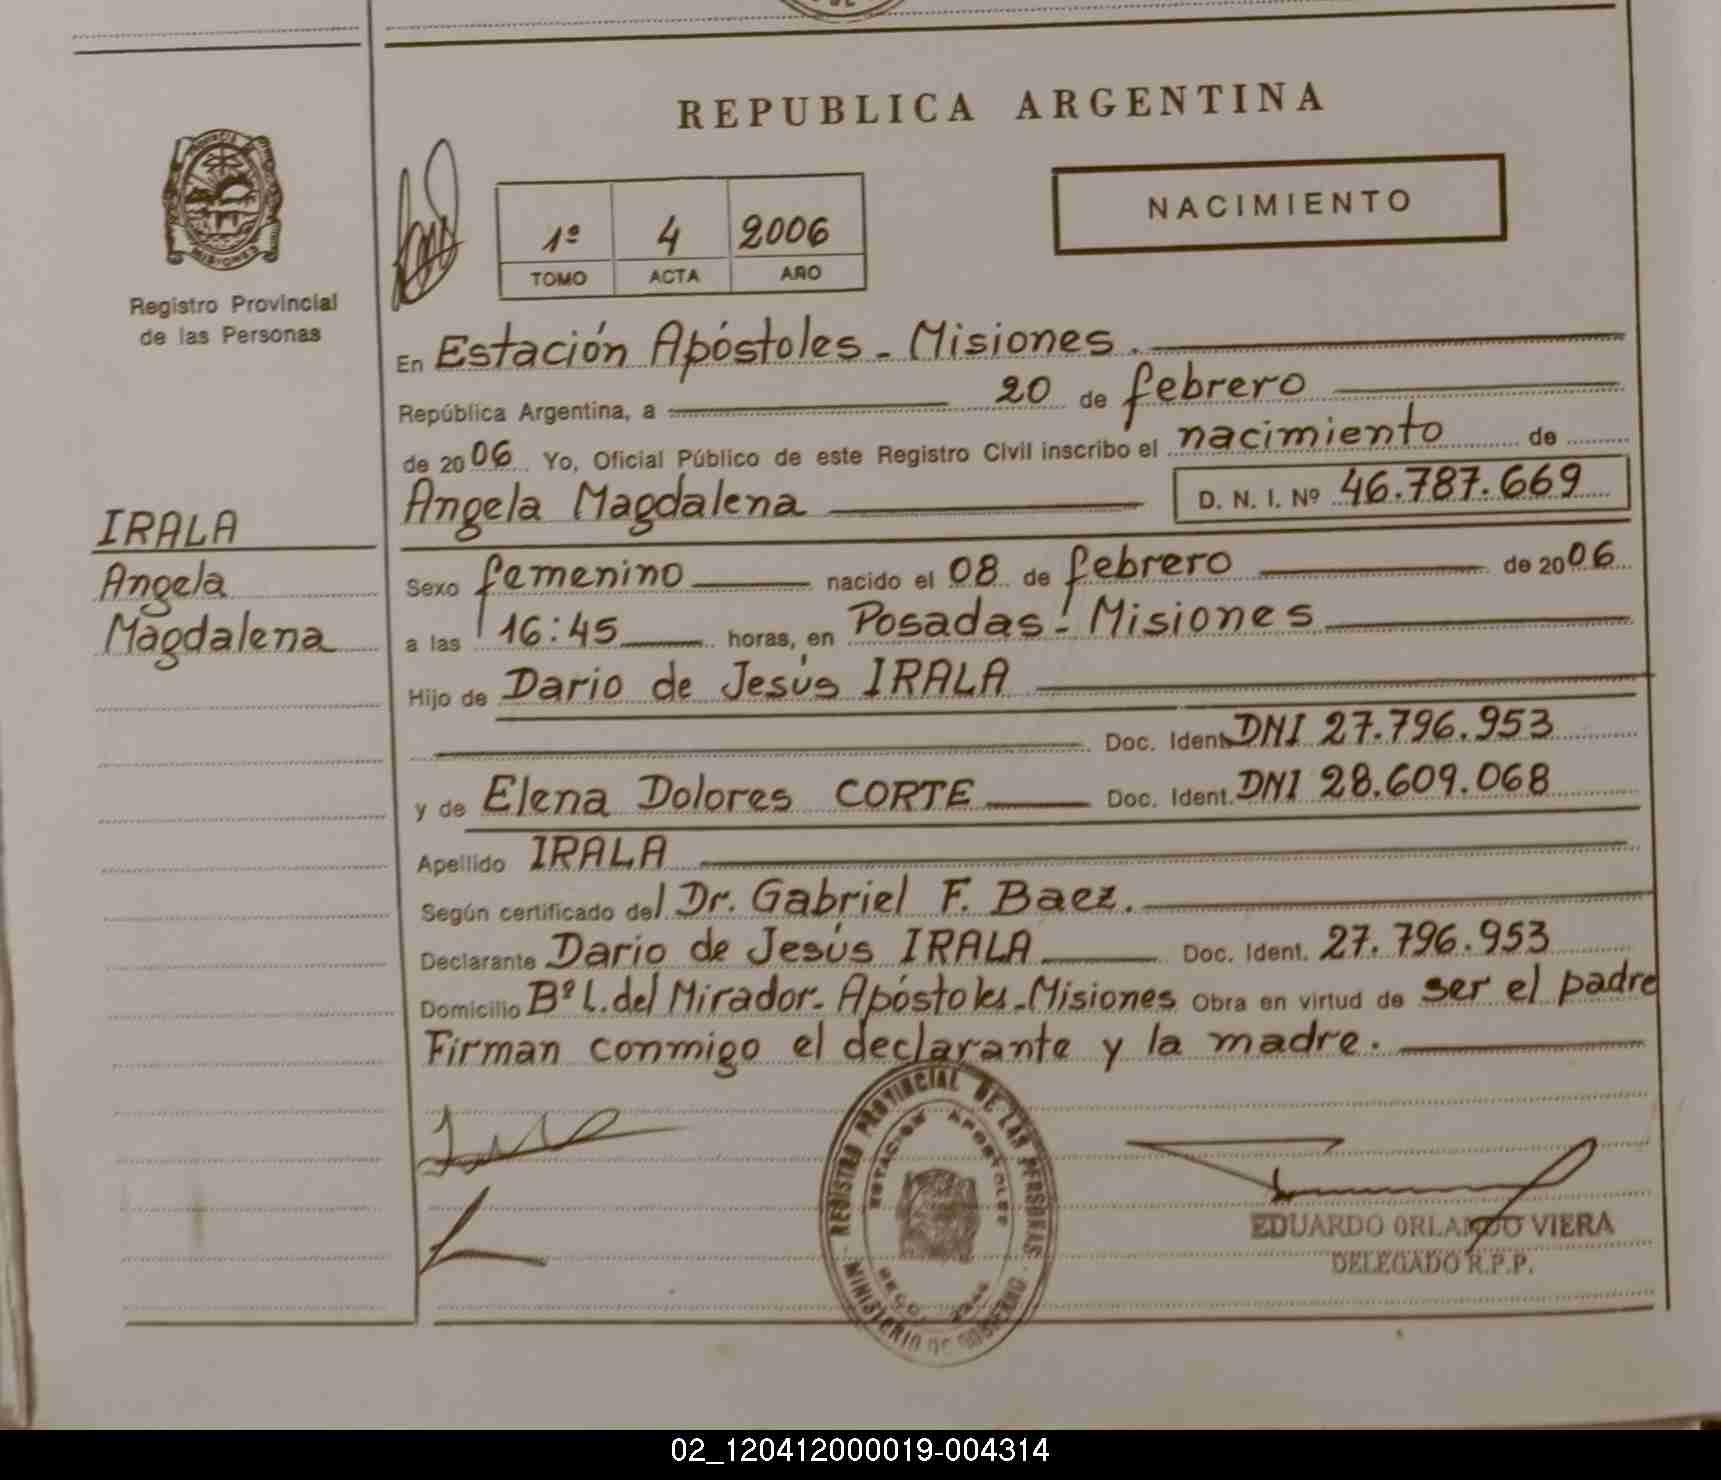 REPUBLICA ARGENTINA
PROVINCIA
MISIONES
Registro Provincial
de las Personas
1º 4 2006
TOMO ACTA AÑO
NACIMIENTO
En Estación Apóstoles - Misiones.
República Argentina, a 20 de febrero
de 2006 Yo, Oficial Público de este Registro Civil inscribo el nacimiento de
Angela Magdalena D. N. I. Nº 46.787.669
IRALA
Angela
Magdalena
Sexo femenino nacido el 08 de febrero de 2006
a las 16:45 horas, en Posadas - Misiones
Hijo de Dario de Jesús IRALA
Doc. Ident. DNI 27.796.953
y de Elena Dolores CORTE Doc. Ident. DNI 28.609.068
Apellido IRALA
Según certificado del Dr. Gabriel F. Baez.
Declarante Dario de Jesús IRALA Doc. Ident. 27.796.953
Domicilio Bº L. del Mirador - Apóstoles - Misiones Obra en virtud de ser el padre
Firman conmigo el declarante y la madre.
REGISTRO PROVINCIAL DE LAS PERSONAS
ESTACION APOSTOLES
MINISTERIO DE GOBIERNO
EDUARDO ORLANDO VIERA
DELEGADO R.P.P.
02_120412000019-004314